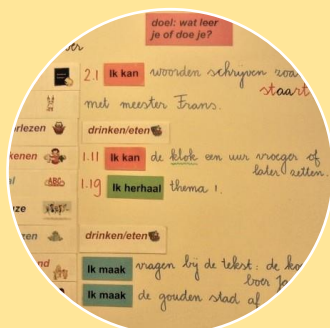 doel: wat leer
je of doe je?
2.1 Ik kan woorden schrijven zoa
staart
met meester Frans.
erlezen drinken/eten
kenen 1.11 Ik kan de klok een uur vroeger of
later zetten.
ABC 1.19 Ik herhaal thema 1.
uze
gen drinken/eten
nd Ik maak vragen bij de tekst: de ko
boer Ja
Ik maak de gouden stad af